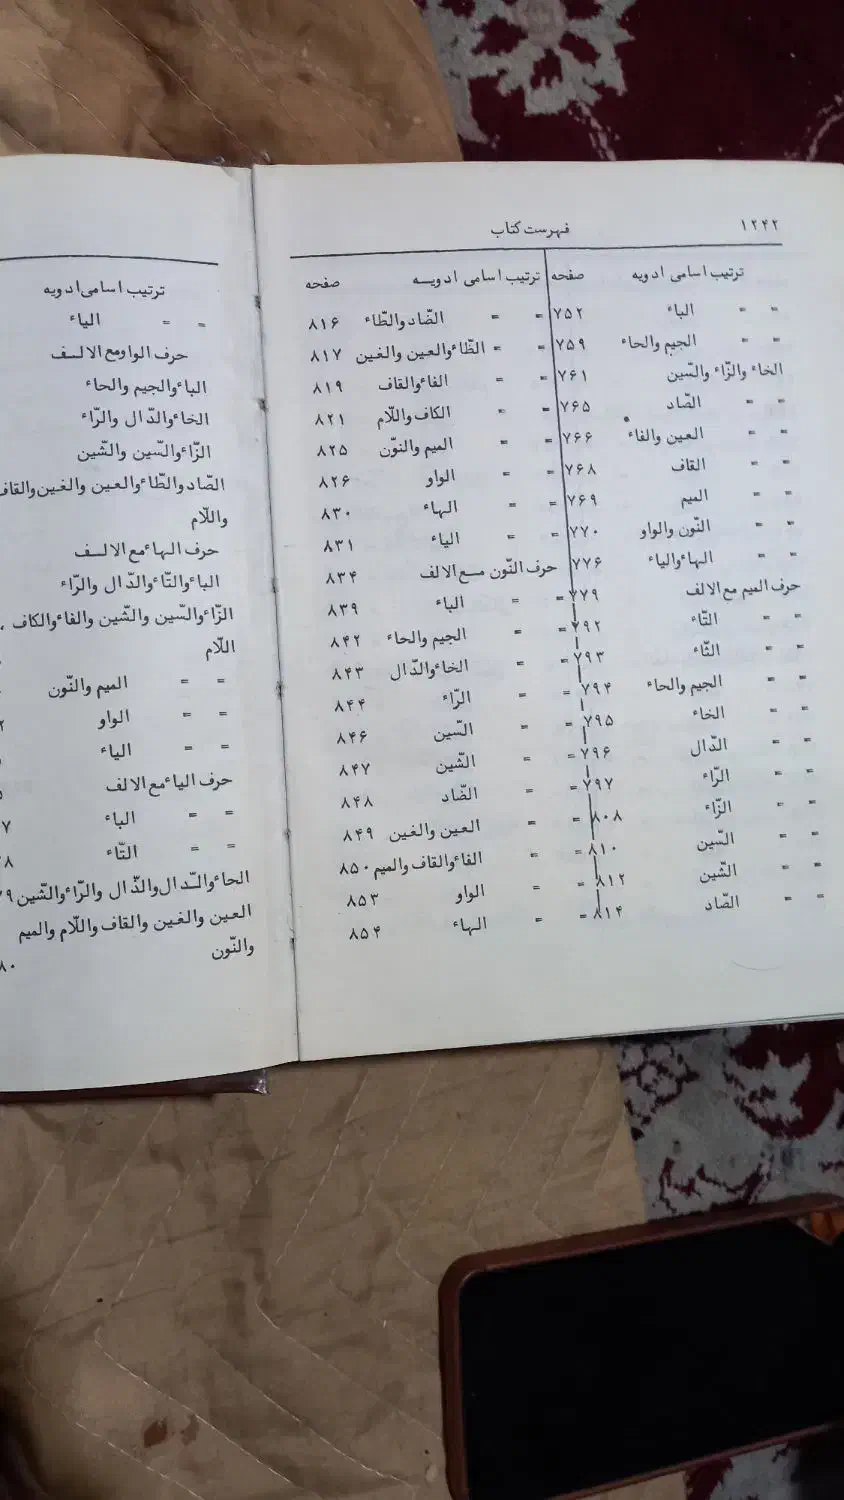 ۱۲۴۲ فهرست کتاب
ترتیب اسامی ادویه صفحه
= = الباء ۷۵۲
= = الجیم والحاء ۷۵۹
الخاء والزّاء والسّین ۷۶۱
= = الصّاد ۷۶۵
= = العین والفاء ۷۶۶
= = القاف ۷۶۸
= = المیم ۷۶۹
= = النّون والواو ۷۷۰
= = الهاء والیاء ۷۷۶
حرف المیم مع الالف ۷۷۹
= = التّاء ۷۹۲
= = الثّاء ۷۹۳
= = الجیم والحاء ۷۹۴
= = الخاء ۷۹۵
= = الدّال ۷۹۶
= = الرّاء ۷۹۷
= = الزّاء ۸۰۸
= = السّین ۸۱۰
= = الشّین ۸۱۲
= = الصّاد ۸۱۴
ترتیب اسامی ادویسه صفحه
= = الضّاد والطّاء ۸۱۶
= = الظّاء والعین والغین ۸۱۷
= = الفاء والقاف ۸۱۹
= = الکاف واللّام ۸۲۱
= = المیم والنّون ۸۲۵
= = الواو ۸۲۶
= = الهاء ۸۳۰
= = الیاء ۸۳۱
حرف النّون مع الالف ۸۳۴
= = الباء ۸۳۹
= = الجیم والحاء ۸۴۲
= = الخاء والدّال ۸۴۳
= = الرّاء ۸۴۴
= = السّین ۸۴۶
= = الشّین ۸۴۷
= = الضّاد ۸۴۸
= = العین والغین ۸۴۹
= = الفاء والقاف والمیم ۸۵۰
= = الواو ۸۵۳
= = الهاء ۸۵۴
ترتیب اسامی ادویه
= = الیاء
حرف الواو مع الالف
الباء والجیم والحاء
الخاء والدّال والرّاء
الزّاء والسّین والشّین
الصّاد والطّاء والعین والغین والقاف
واللّام
حرف الهاء مع الالف
الباء والتّاء والدّال والرّاء
الزّاء والسّین والشّین والفاء والکاف
اللّام
= = المیم والنّون
= = الواو
= = الیاء
حرف الیاء مع الالف
= = الباء
= = التّاء
الحاء والدال والذّال والرّاء والشّین
العین والغین والقاف واللّام والمیم
والنّون